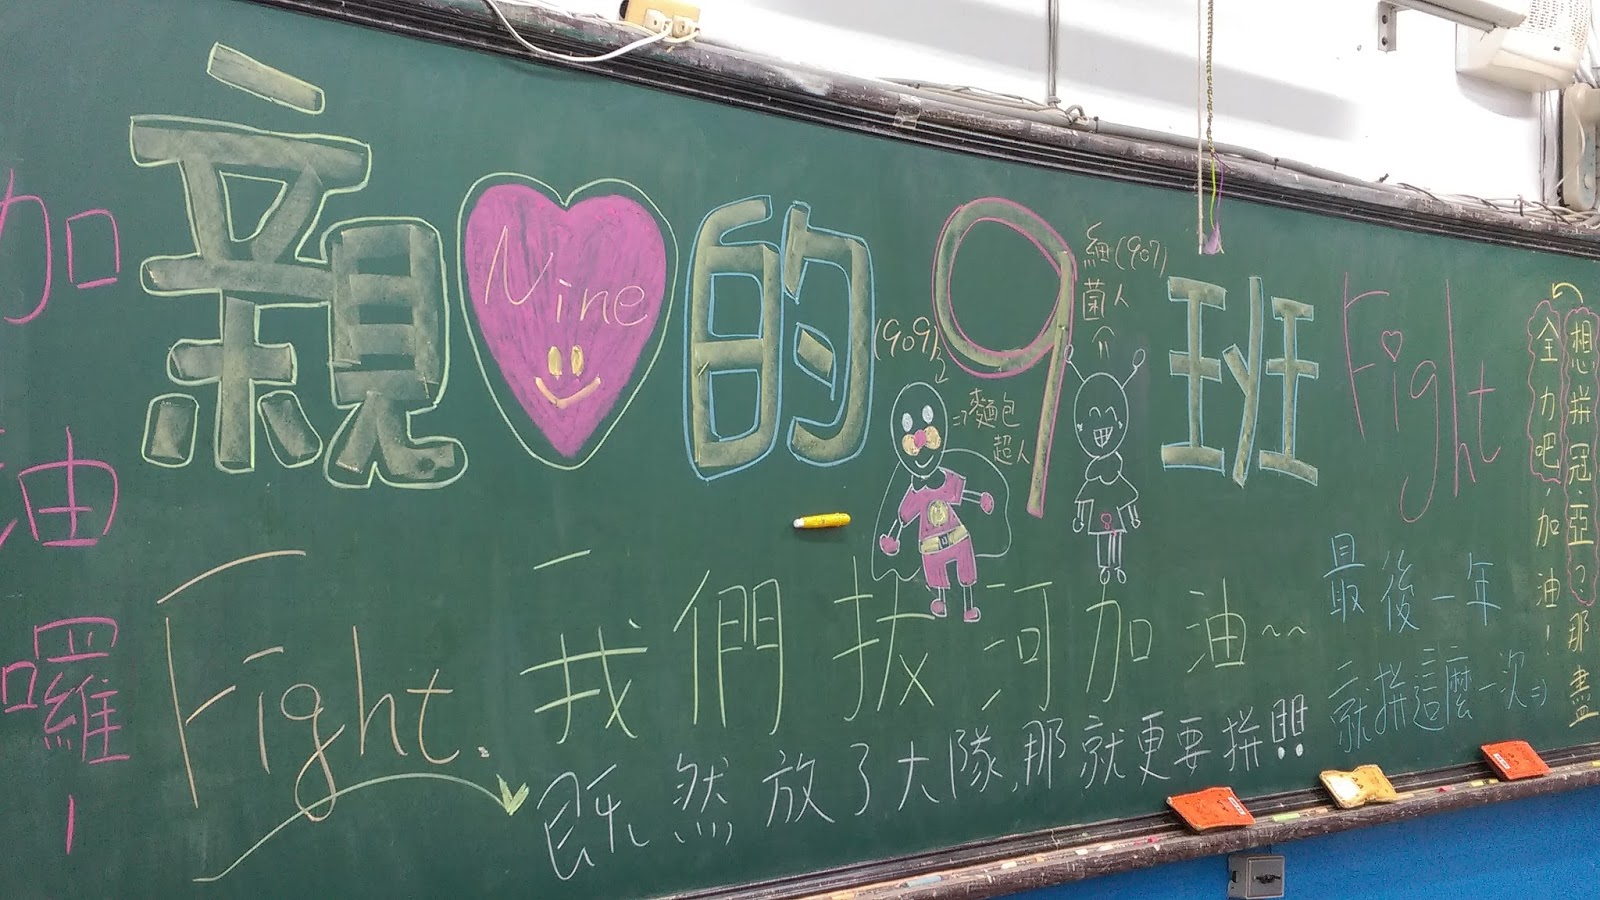 加油囉!
親 Nine 的9班 Fight
(909)
=>麵包
超人
細(907)
菌人
Fight.
我們拔河加油~~
既然放了大隊,那就更要拼!!!
最後一年
就拼這麼一次=)
想拼冠亞,那盡
全力吧,加油!